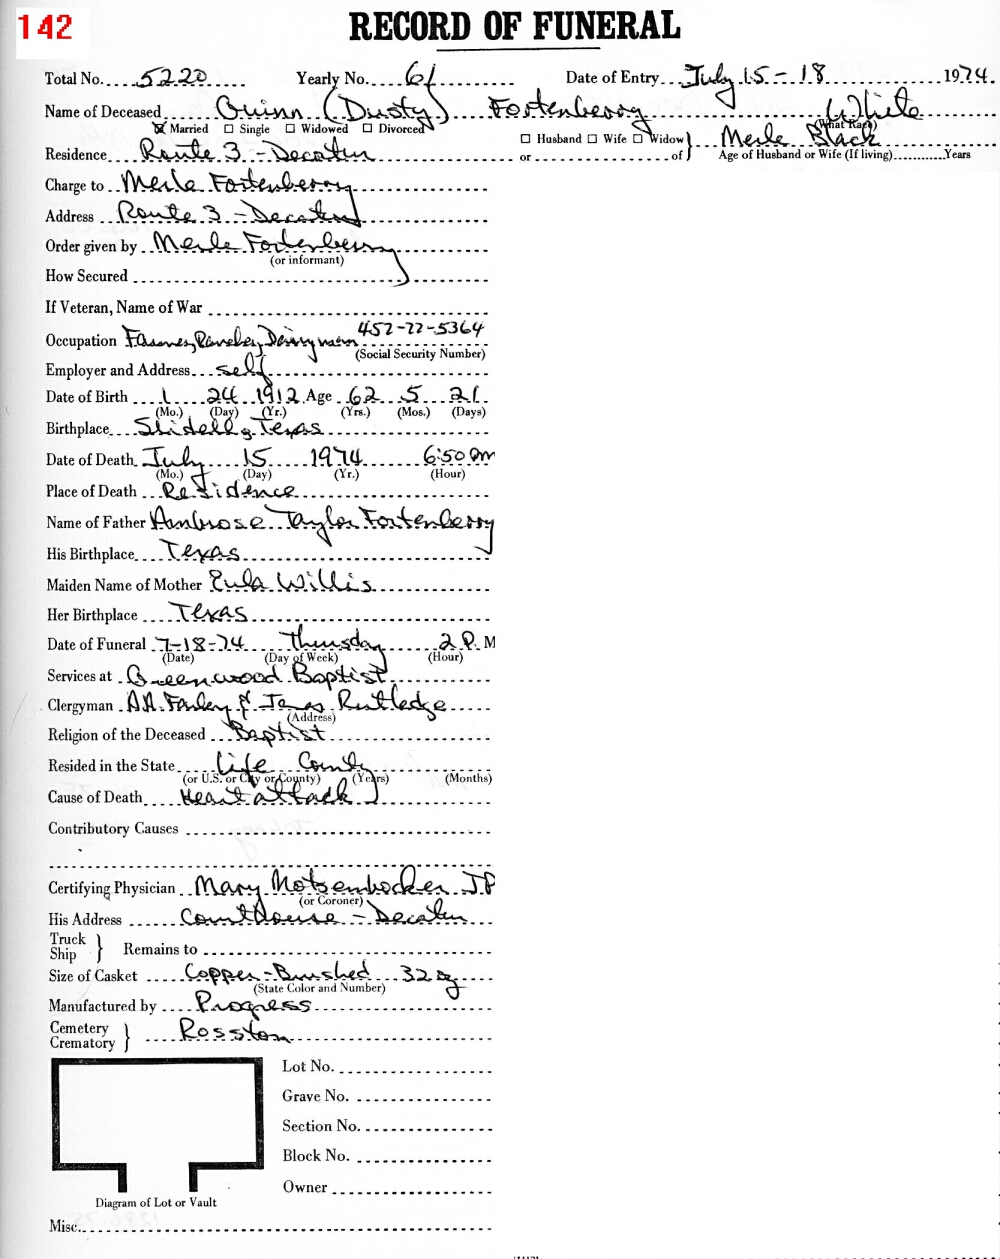 142
RECORD OF FUNERAL
Total No. 5220 Yearly No. 61 Date of Entry July 15 - 18 1974
Name of Deceased Quinn (Dusty) Fortenberry White
(What Race)
☒ Married ☐ Single ☐ Widowed ☐ Divorced ☐ Husband ☐ Wife ☐ Widow } Merle Black
Residence Route 3 - Decatur or of Age of Husband or Wife (If living) Years
Charge to Merle Fortenberry
Address Route 3 - Decatur
Order given by Merle Fortenberry
(or informant)
How Secured
If Veteran, Name of War
Occupation Farmer, Rancher, Dairyman 452-22-5364
(Social Security Number)
Employer and Address self
Date of Birth 1 24 1912 Age 62 5 21
(Mo.) (Day) (Yr.) (Yrs.) (Mos.) (Days)
Birthplace Slidell, Texas
Date of Death July 15 1974 6:50 PM
(Mo.) (Day) (Yr.) (Hour)
Place of Death Residence
Name of Father Ambrose Taylor Fortenberry
His Birthplace Texas
Maiden Name of Mother Eula Willis
Her Birthplace Texas
Date of Funeral 7-18-74 Thursday 2 P. M
(Date) (Day of Week) (Hour)
Services at Greenwood Baptist
Clergyman A.A. Farley & Rutledge
(Address)
Religion of the Deceased Baptist
Resided in the State Life County
(or U.S. or City or County) (Years) (Months)
Cause of Death Heart attack
Contributory Causes
Certifying Physician Mary Motsenbocker JP
(or Coroner)
His Address Courthouse - Decatur
Truck
Ship } Remains to
Size of Casket Copper-Brushed 32 oz
(State Color and Number)
Manufactured by Progress
Cemetery
Crematory } Rosston
Lot No.
Grave No.
Section No.
Block No.
Owner
Diagram of Lot or Vault
Misc.